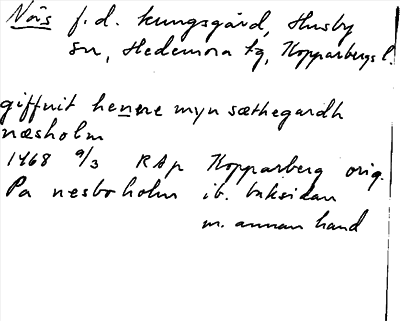 Näs f.d. kungsgård, Husby
sn, Hedemora tg, Kopparbergs l.
giffuit henne myn sæthegardh
næsholm
1468 9/3 RAp Kopparberg orig.
Pa nesboholm ib. baksidan
m. annan hand